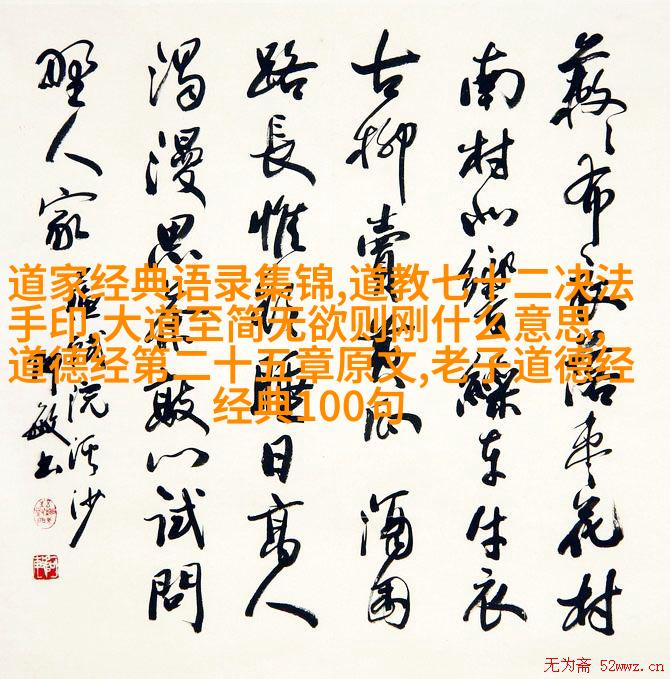 蔌〻衣巾落棗花村
南村北響繅車牛衣
古柳賣黄瓜 酒困
路長惟欲睡日高人
渴漫思茶敲门試問
野人家
蘇軾浣溪沙
敏书
道家经典语录集锦,道教七十二决法
手印,大道至简无欲则刚什么意思,
道德经第二十五章原文,老子道德经
经典100句
无为斋 52wwz.cn